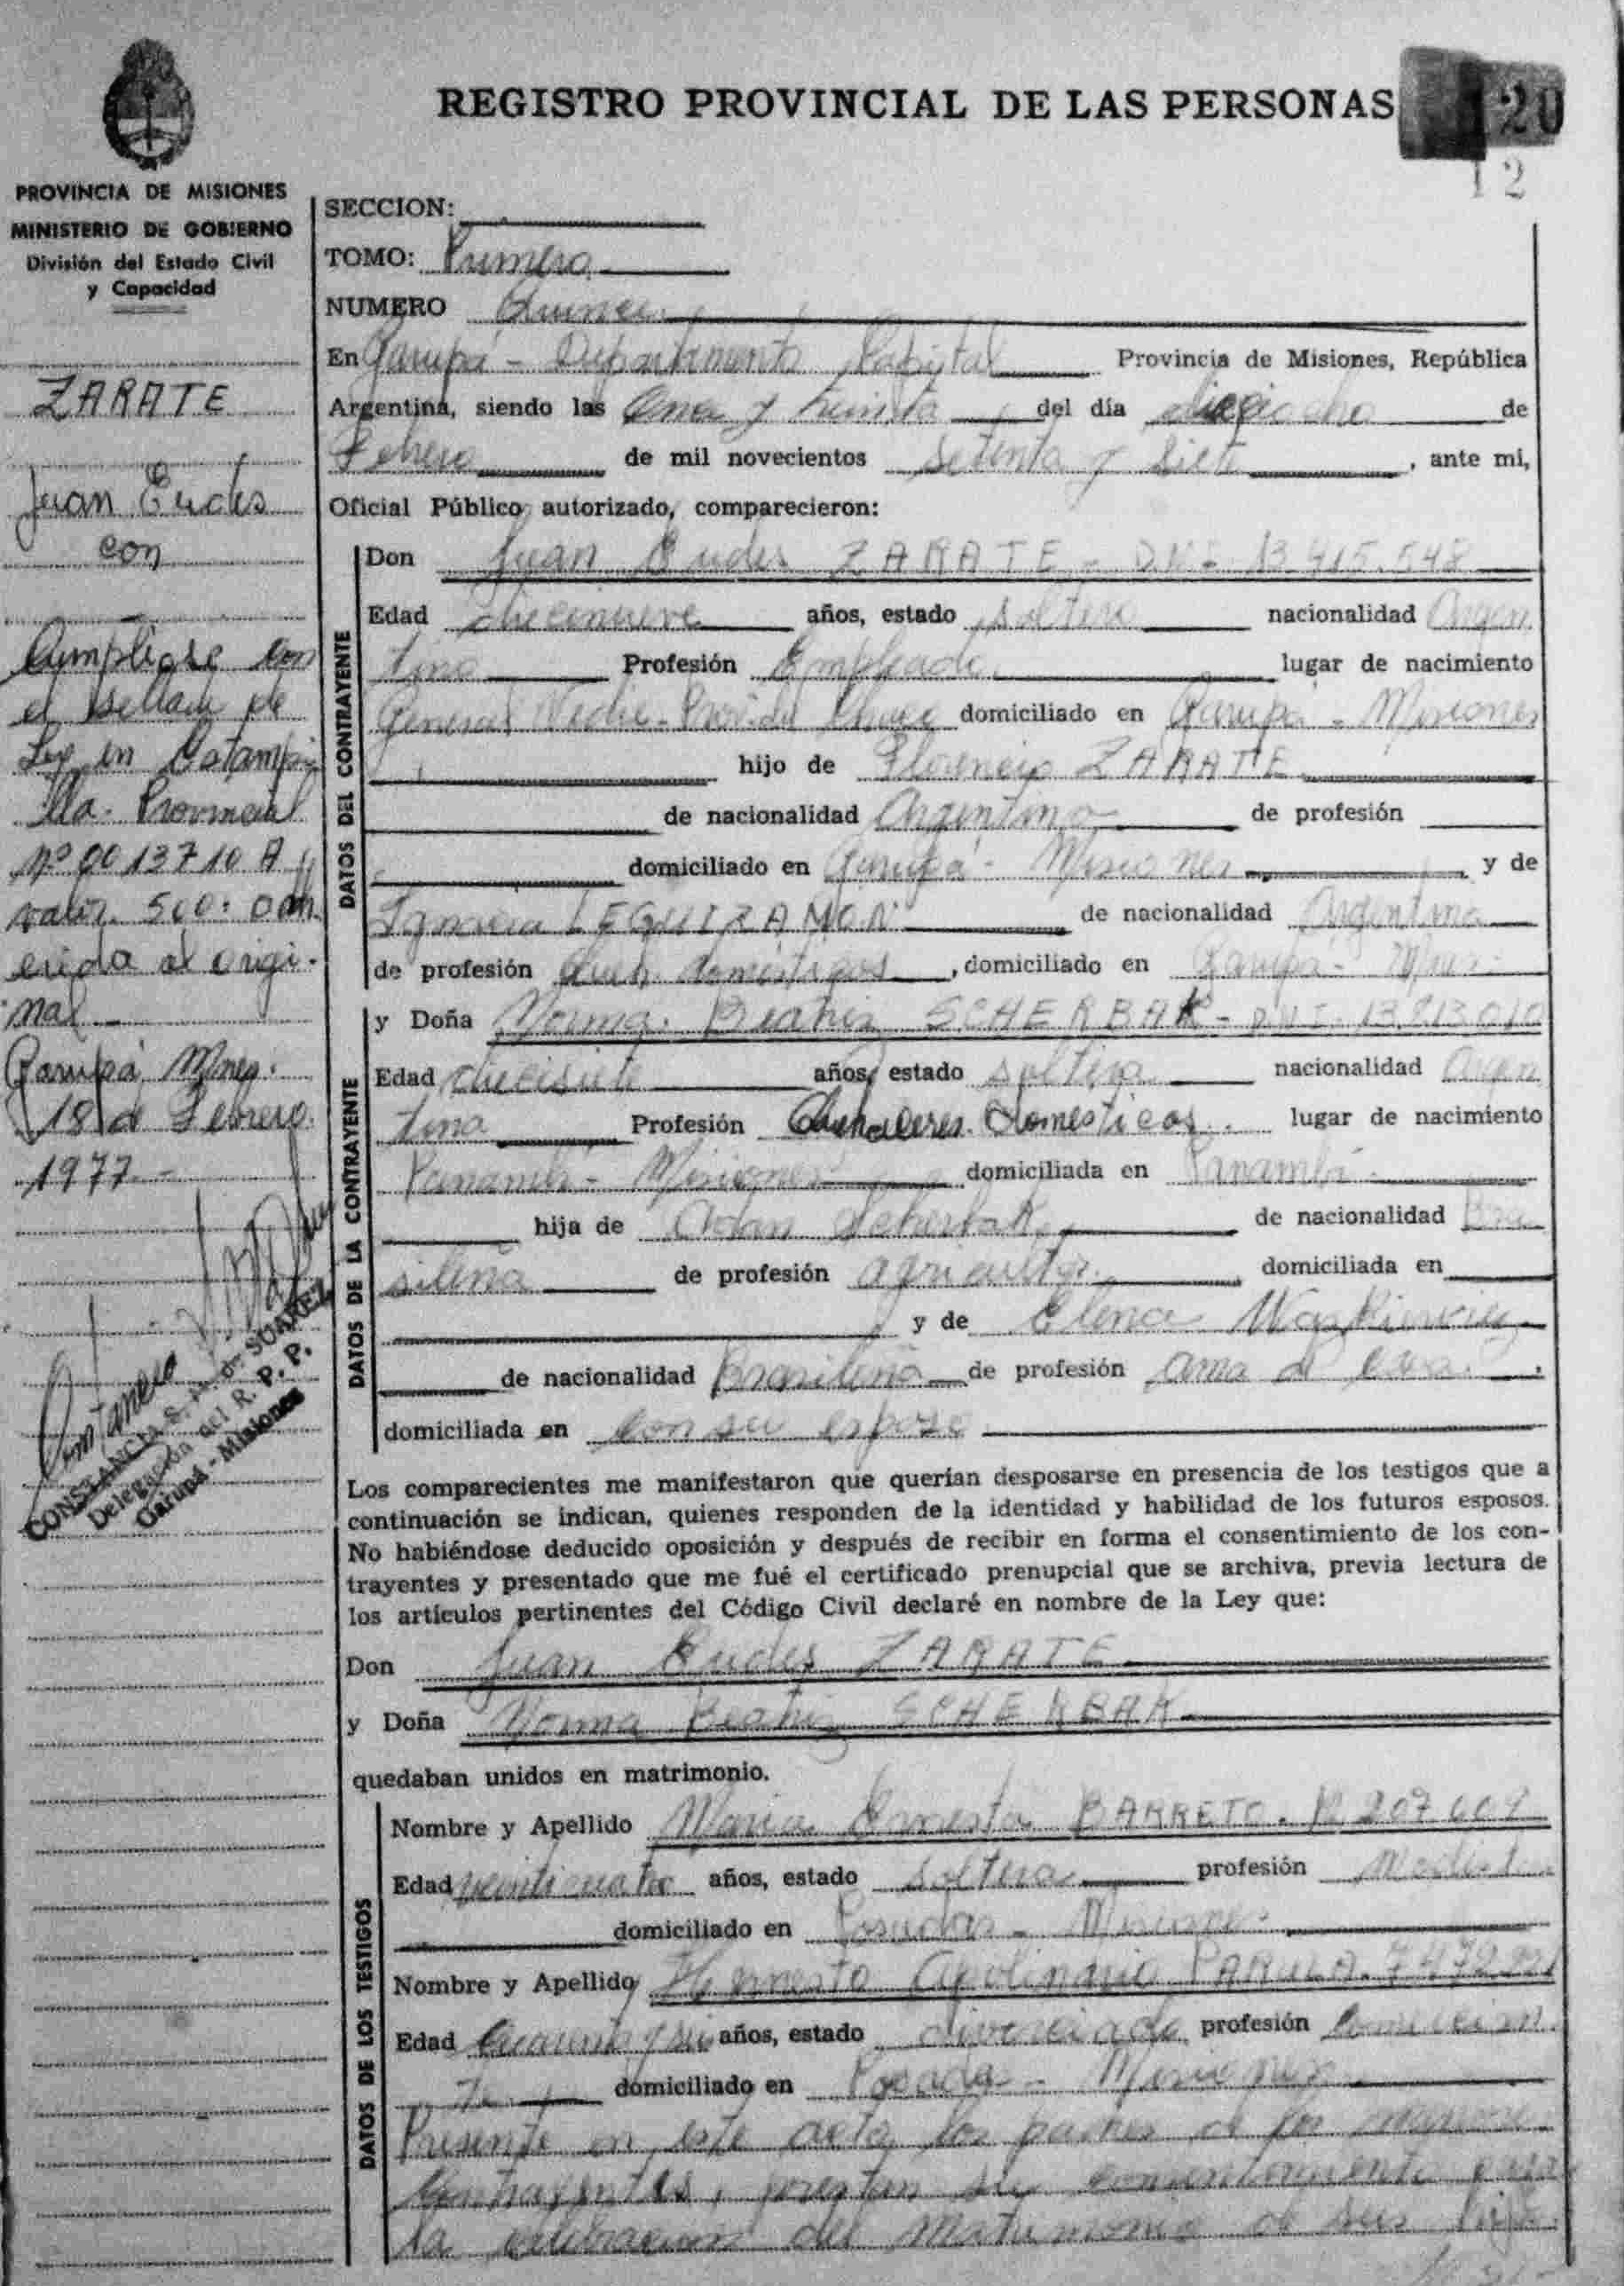 REGISTRO PROVINCIAL DE LAS PERSONAS
120
12
PROVINCIA DE MISIONES
MINISTERIO DE GOBIERNO
División del Estado Civil
y Capacidad
ZARATE
Juan Eudes
con
Cumpliose con
el sellado de
Ley en Estampi
lla Provincial
Nº 0013710 A y
valor 500.
erida al origi-
nal
Garupá Mnes.
18 de Febrero
1977.-
CONSTANCIA S. de SUAREZ
Delegación del R. P. P.
Garupá - Misiones
SECCION:
TOMO: Primero
NUMERO Quince
En Garupá - Departamento Capital Provincia de Misiones, República
Argentina, siendo las Once y treinta del día dieciocho de
Febrero de mil novecientos setenta y siete, ante mi,
Oficial Público autorizado, comparecieron:
DATOS DEL CONTRAYENTE
Don Juan Eudes ZARATE - DNI - 13.415.548
Edad diecinueve años, estado soltero nacionalidad Argen
tina Profesión Empleado lugar de nacimiento
General Vedia - Prov. del Chaco domiciliado en Garupá - Misiones
hijo de Florencio ZARATE
de nacionalidad Argentino de profesión
domiciliado en Garupá - Misiones y de
Ignacia LEGUIZAMON de nacionalidad Argentina
de profesión Queh. domésticos, domiciliado en Garupá - Mnes.
DATOS DE LA CONTRAYENTE
y Doña Norma Beatriz SCHERBAK - DNI - 13.813.010
Edad diecisiete años, estado soltera nacionalidad Argen
tina Profesión Quehaceres Domesticos lugar de nacimiento
Panambí - Misiones domiciliada en Panambí
hija de Adan Scherbak de nacionalidad Bra
sileña de profesión agricultor domiciliada en
y de Elena
de nacionalidad Brasileña de profesión ama de casa
domiciliada en con su esposo
Los comparecientes me manifestaron que querían desposarse en presencia de los testigos que a
continuación se indican, quienes responden de la identidad y habilidad de los futuros esposos.
No habiéndose deducido oposición y después de recibir en forma el consentimiento de los con-
trayentes y presentado que me fué el certificado prenupcial que se archiva, previa lectura de
los artículos pertinentes del Código Civil declaré en nombre de la Ley que:
Don Juan Eudes ZARATE
y Doña Norma Beatriz SCHERBAK
quedaban unidos en matrimonio.
DATOS DE LOS TESTIGOS
Nombre y Apellido Maria Ernesta BARRETO.
Edad veinticuatro años, estado soltera profesión Modista
domiciliado en Posadas - Misiones
Nombre y Apellido Hernesto Apolinario
Edad años, estado divorciado profesión Comercian
te domiciliado en Posadas - Misiones
Presente en este acto los padres de los
contrayentes, prestan su consentimiento para
la celebracion del Matrimonio de sus hijos